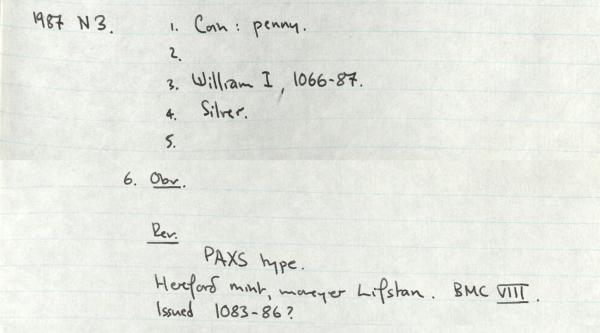 1987 N3. 1. Coin: penny.
2.
3. William I, 1066-87.
4. Silver.
5.
6. Obv.
Rev.
PAXS type.
Hereford mint, moneyer Lifstan. BMC VIII.
Issued 1083-86?